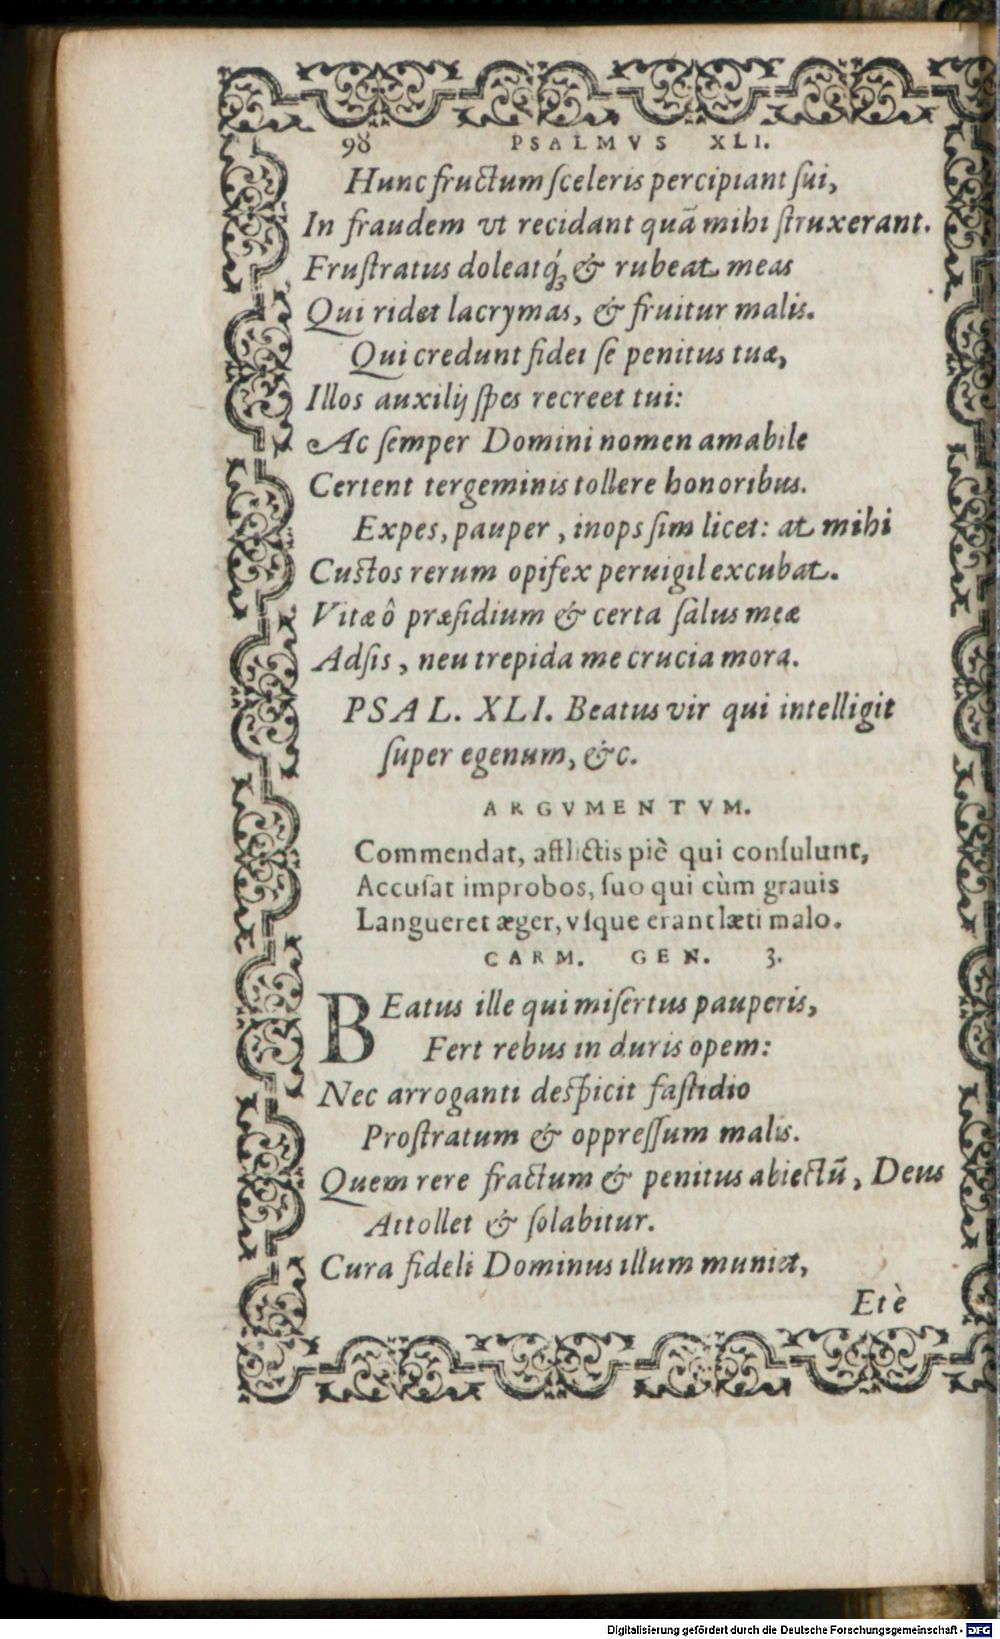 98 PSALMVS XLI.
Hunc fructum ſceleris percipiant ſui,
In fraudem vt recidant quã mihi ſtruxerant.
Fruſtratus doleatq́ꝫ & rubeat meas
Qui ridet lacrymas, & fruitur malis.
Qui credunt fidei ſe penitus tuæ,
Illos auxilij ſpes recreet tui:
Ac ſemper Domini nomen amabile
Certent tergeminis tollere honoribus.
Expes, pauper, inops ſim licet: at mihi
Cuſtos rerum opifex peruigil excubat.
Vitæ ô præſidium & certa ſalus meæ
Adſis, neu trepida me crucia mora.
PSAL. XLI. Beatus vir qui intelligit
ſuper egenum, &c.
ARGVMENTVM.
Commendat, afflictis piè qui conſulunt,
Accuſat improbos, ſuo qui cùm grauis
Langueret æger, vſque erant læti malo.
CARM. GEN. 3.
BEatus ille qui miſertus pauperis,
Fert rebus in duris opem:
Nec arroganti deſpicit faſtidio
Proſtratum & oppreſſum malis.
Quem rere fractum & penitus abiectũ, Deus
Attollet & ſolabitur.
Cura fideli Dominus illum muniet,
Et è
Digitalisierung gefördert durch die Deutsche Forschungsgemeinschaft - DFG